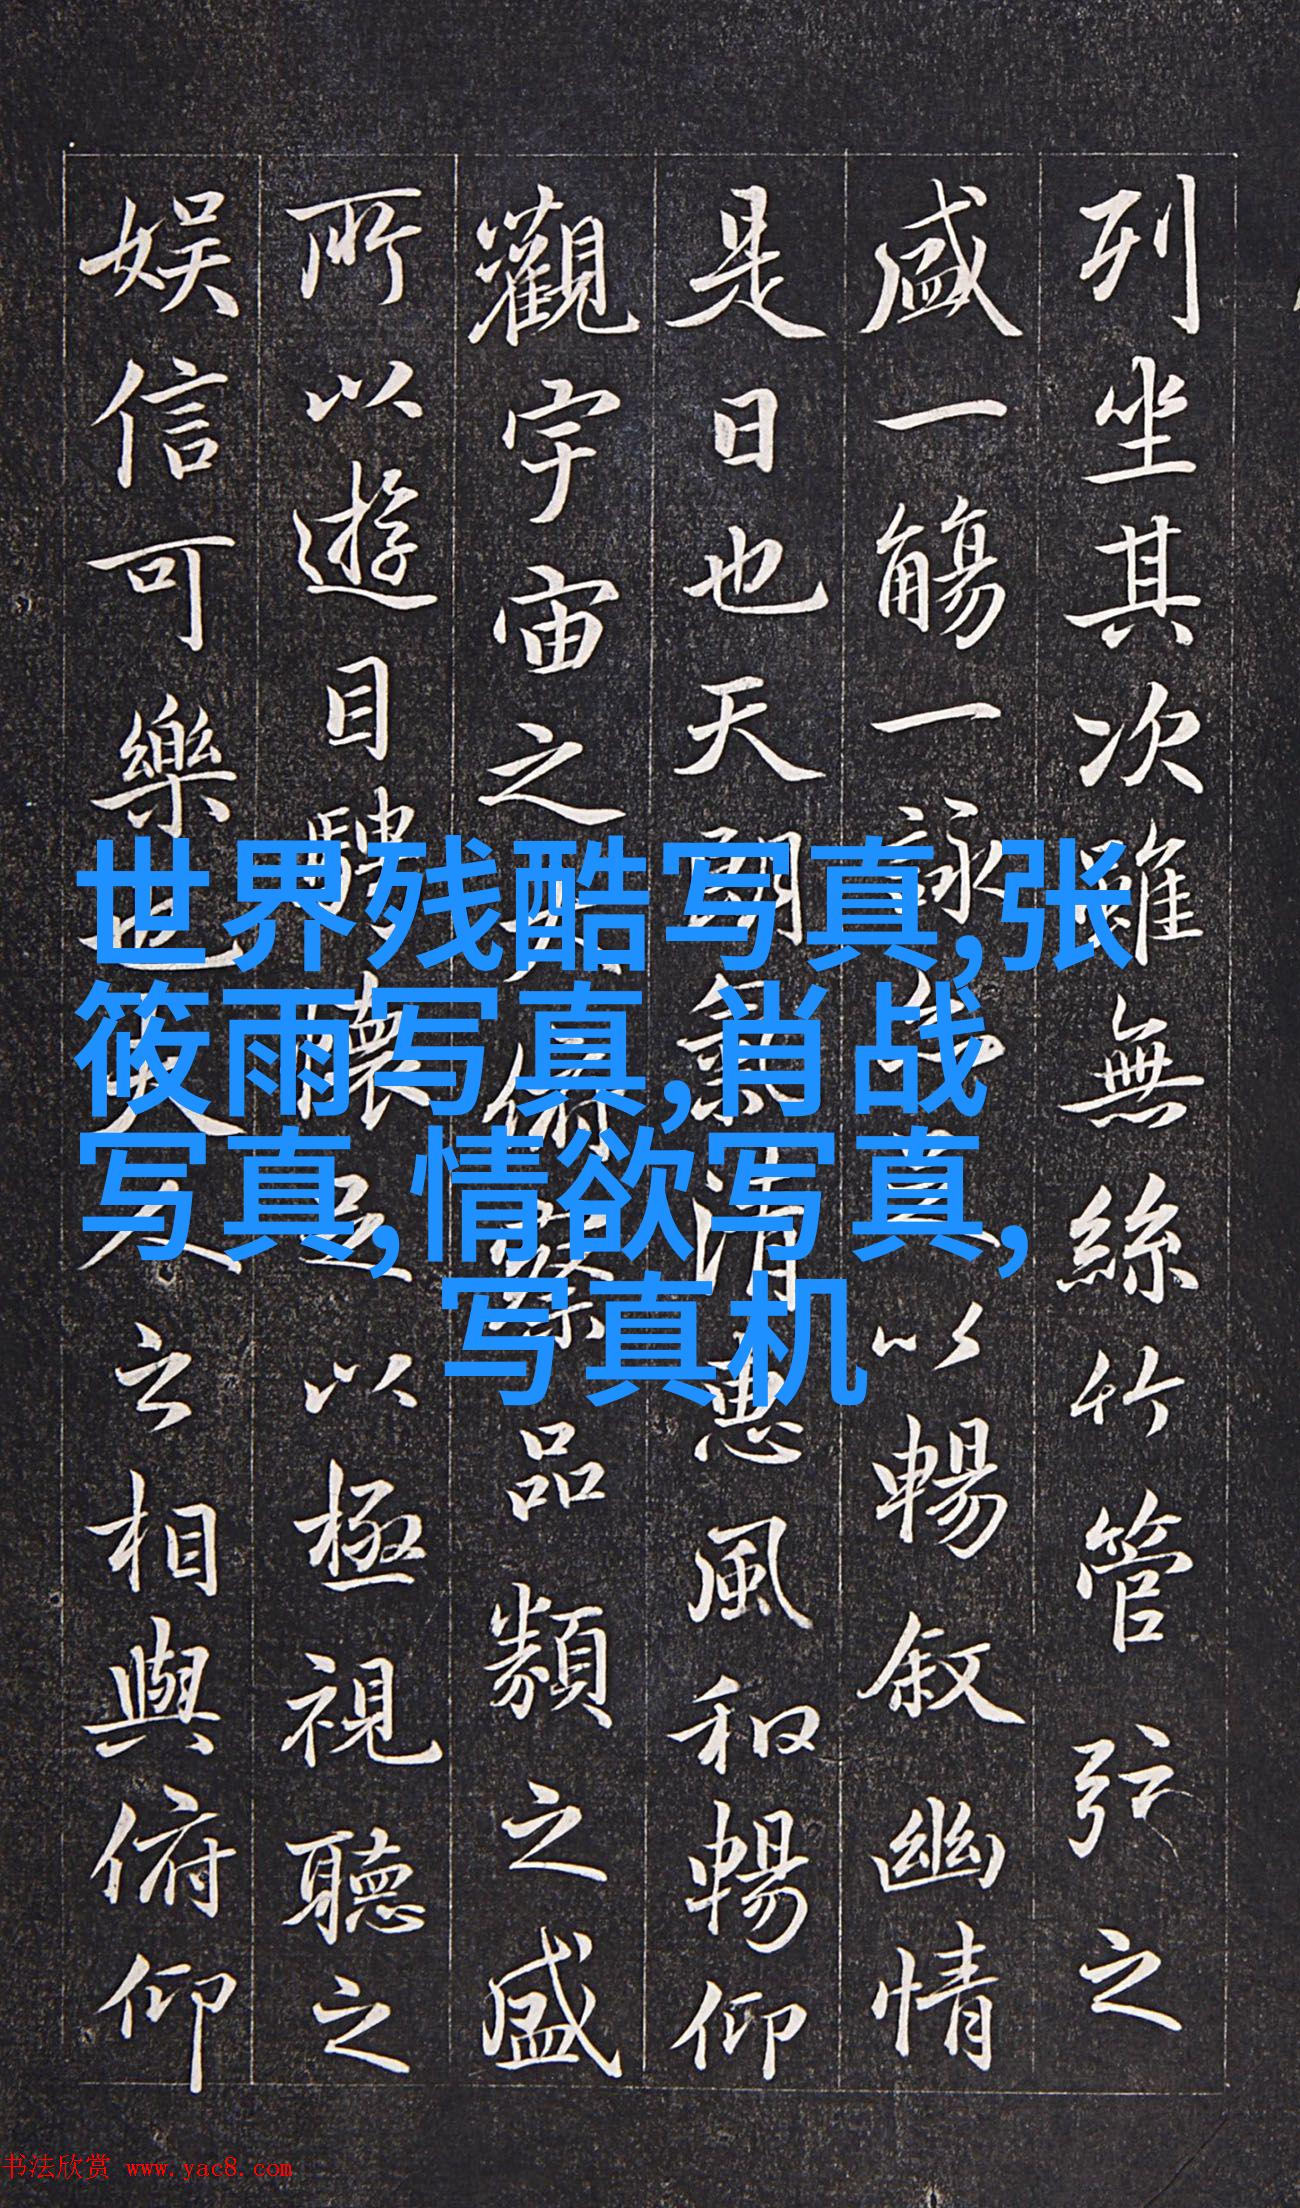 列坐其次雖無絲竹管弦之
盛一觴一詠以暢叙幽情
是日也天朗氣清惠風和暢仰
觀宇宙之大俯察品類之盛
所以遊目騁懷足以極視聽之
娛信可樂也夫人之相與俯仰
世界残酷写真,张
筱雨写真,肖战
写真,情欲写真,
写真机
书法欣赏 www.yac8.com